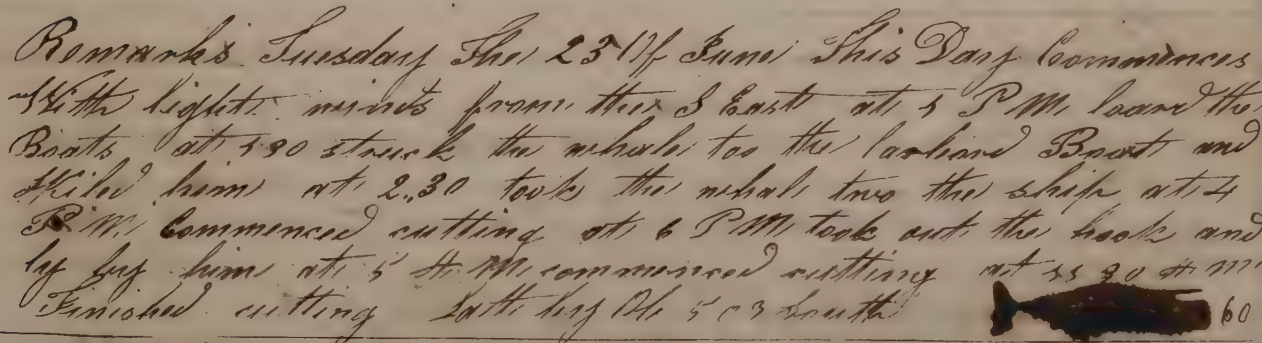 Remarks Tuesday The 23 Of June This Day Commences
With light winds from the S East at 1 P M loard the
Boats at 1 30 struck the whale too the larbord Boat and
Kiled him at 2.30 took the whale two the ship at 4
P M Commenced cutting at 6 P M took out the hook and
ly by him at 5 A M commenced cutting at 11 30 A M
Finished cutting Latt by Ob South 60